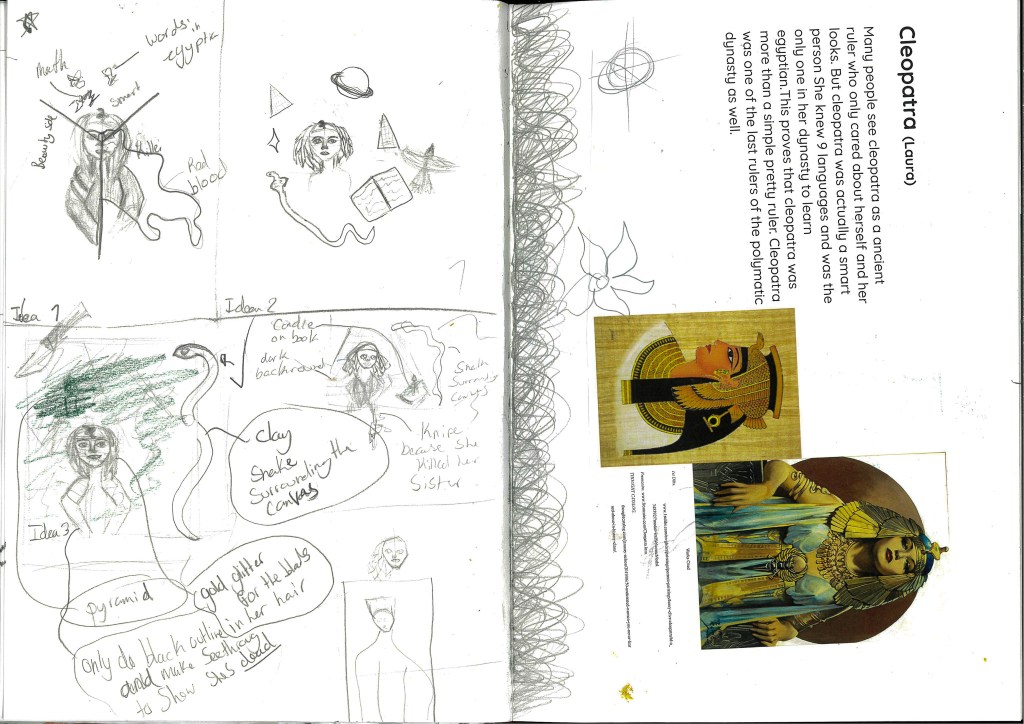 words in
egypte
math
smart
Beauty side
killer
Red
blood
Idea 1
Idean 2
Candle
on book
dark
backround
Snake
Surround
Canvas
Clay
Snake
Surrounding the
canvas
Knife
because She
killed her
Sister
Idea 3
pyramid
gold glitter
for the blads
in her hair
only do black outline
and make
to show shes dead
Cleopatra (Laura)
Many people see cleopatra as a ancient
ruler who only cared about herself and her
looks. But cleopatra was actually a smart
person She knew 9 languages and was the
only one in her dynasty to learn
egyptian.This proves that cleopatra was
more than a simple pretty ruler. Cleopatra
was one of the last rulers of the polymatic
dynasty as well.
Works Cited
THOUGHT CATALOG